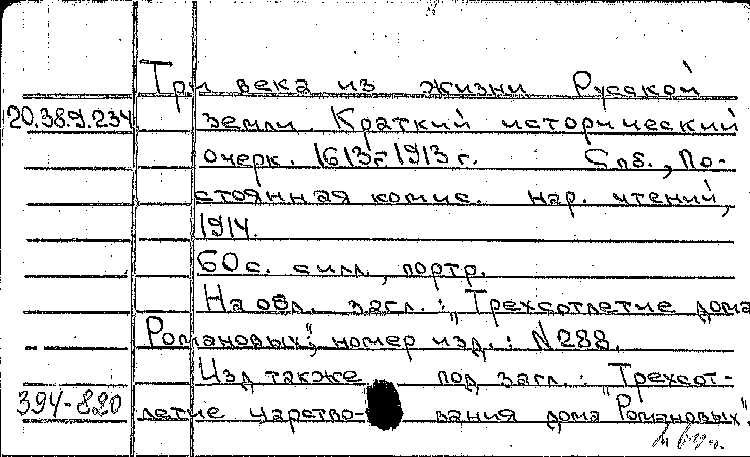 Три века из жизни Русской
20.38.9.234 земли. Краткий исторический
очерк. 1613г-1913г. Спб., По-
стоянная комис. нар. чтений,
1914.
60 с. с илл., портр.
На обл. загл.: „Трехсотлетие дома
Романовых"; номер изд.: N 288.
Изд. также под загл.: „Трехсот-
394-820 летие царство- вания дома Романовых".